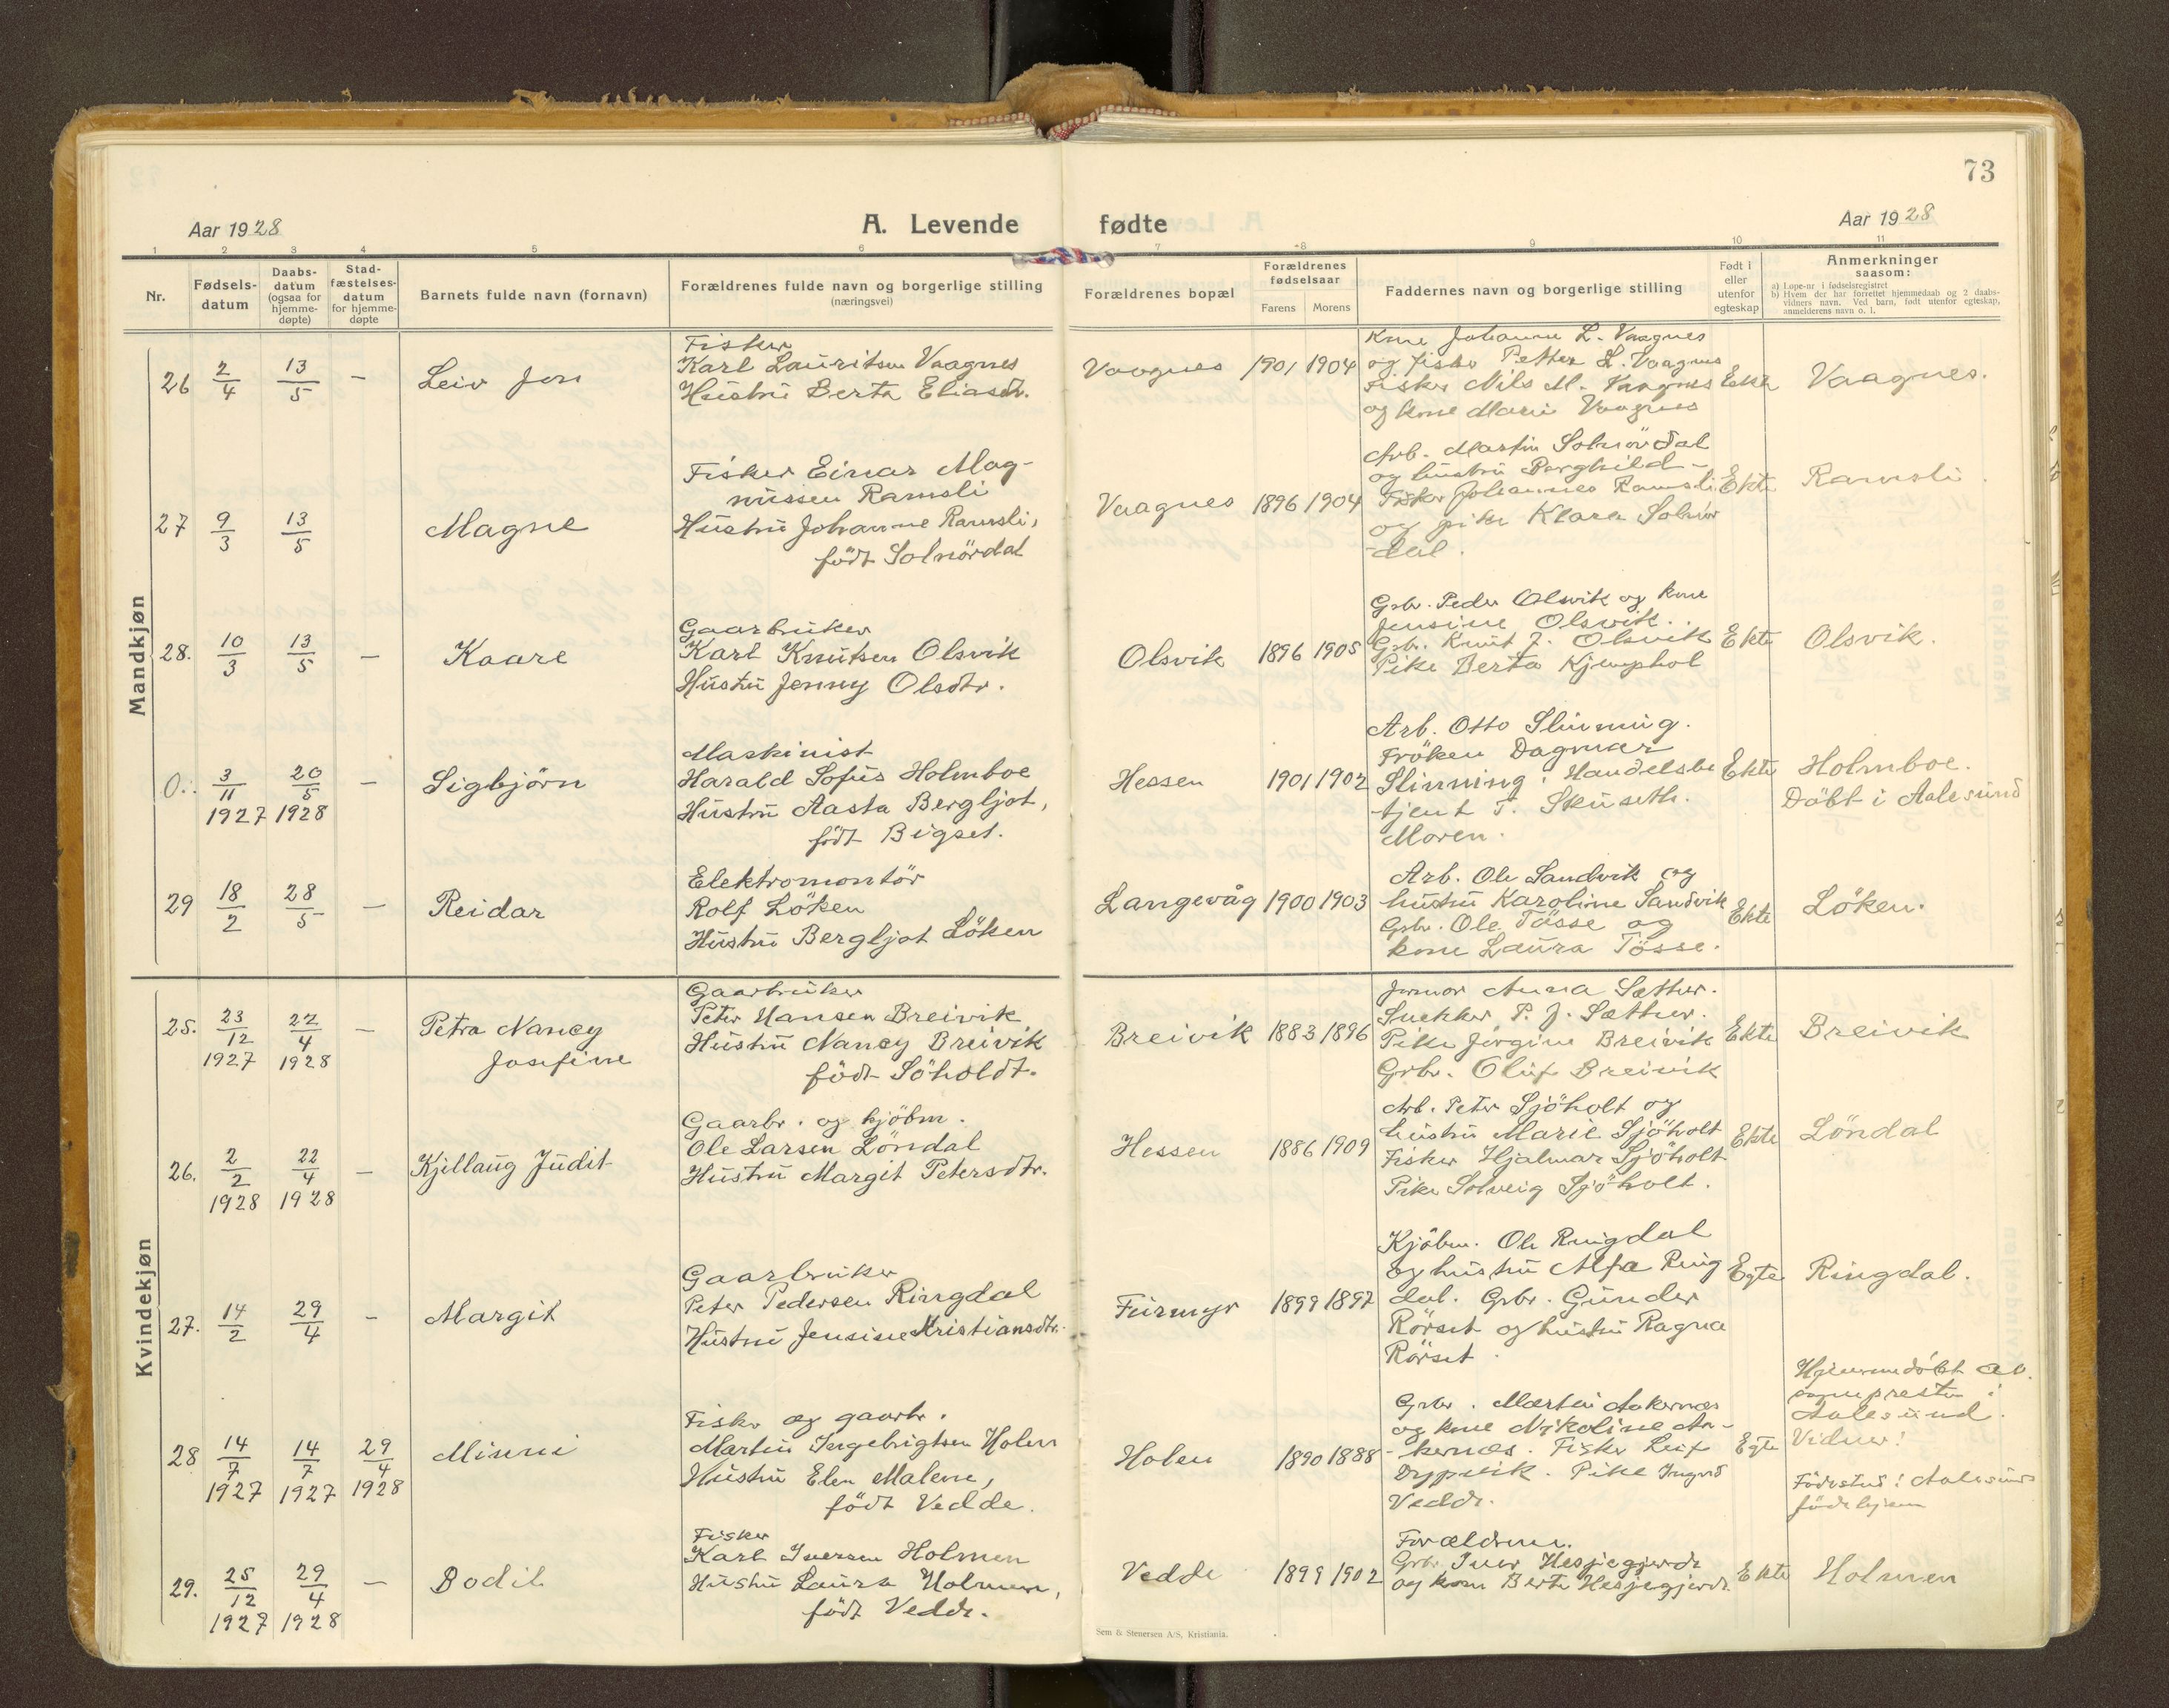 73
Aar 1928
A. Levende fødte
Aar 1928
1 2 3 4 5 6 7 8 9 10 11
Nr.
Fødsels-
datum
Daabs-
datum
(ogsaa for
hjemme-
døpte)
Stad-
fæstelses-
datum
for hjemme-
døpte
Barnets fulde navn (fornavn)
Forældrenes fulde navn og borgerlige stilling
(næringsvei)
Forældrenes bopæl
Forældrenes
fødselsaar
Farens Morens
Faddernes navn og borgerlige stilling
Født i
eller
utenfor
egteskap
Anmerkninger
saasom:
a) Løpe-nr i fødselsregistret
b) Hvem der har forrettet hjemmedaab og 2 daabs-
vidners navn. Ved barn, født utenfor egteskap,
anmelderens navn o. l.
Mandkjøn
26 2/4 13/5 – Leiv Jon
Fisker
Karl Lauritsen Vaagnes
Hustru Berta Eliasdr.
Vaagnes 1901 1904
Kone Johanne L. Vaagnes
og fisker Petter L. Vaagnes
Fisker Nils M. Vaagnes
og kone Marie Vaagnes
Ekte
Vaagnes.
27 9/3 13/5 Magne
Fisker Einar Mag-
nussen Ramsli
Hustru Johanne Ramsli,
född Solnördal
Vaagnes 1896 1904
Arb. Martin Solnördal
og hustru Borghild –
Fisker Johannes Ramsli
og pike Klara Solnör
-dal.
Ekte
Ramsli.
28. 10/3 13/5 – Kaare
Gaarbruker
Karl Knutsen Olsvik
Hustru Jenny Olsdtr.
Olsvik 1896 1905
Grbr. Peder Olsvik og kone
Jensine Olsvik.
Grbr. Knut J. Olsvik
Pike Berta Kjemphol
Ekte
Olsvik.
0. 3/11 1927 20/5 1928 – Sigbjörn
Maskinist
Harald Sofus Holmboe
Hustru Aasta Bergljot,
född Bigset.
Hessen 1901 1902
Arb. Otto Slinning.
Fröken Dagmar
Slinning. Handelsbe
tjent T. Skuseth.
Moren.
Ekte
Holmboe.
Döbt i Aalesund
29 18/2 28/5 – Reidar
Elektromontör
Rolf Löken
Hustru Bergljot Löken
Langevåg 1900 1903
Arb. Ole Sandvik og
hustru Karoline Sandvik
Grbr. Ole Tösse og
kone Laura Tösse.
Ekte
Löken.
Kvindekjøn
25. 23/12 1927 22/4 1928 – Petra Nancy
Josefine
Gaarbruker
Peter Hansen Breivik
Hustru Nancy Breivik
född Söholdt.
Breivik 1883 1896
Jormor Anna Sæther.
Snekker P. J. Sæther.
Pike Jörgine Breivik
Grbr. Oluf Breivik
Ekte
Breivik
26. 2/2 1928 22/4 1928 – Kjellaug Judit
Gaarbr. og kjöbm.
Ole Larsen Löndal
Hustru Margit Petersdtr.
Hessen 1886 1909
Arb. Peter Sjöholt og
hustru Marie Sjöholt
Fisker Hjalmar Sjöholt
Pike Solveig Sjöholt.
Ekte
Löndal
27. 14/2 29/4 – Margit
Gaarbruker
Peter Pedersen Ringdal
Hustru Jensine Kristiansdtr.
Furmyr 1899 1897
Kjöbm. Ole Ringdal
og hustru Alfa Ring
dal. Grbr. Gunder
Rörset og hustru Ragna
Rörset.
Egte
Ringdal.
28 14/7 1927 14/7 1927 29/4 1928 Minni
Fisker og gaarbr.
Martin Ingebrigtsen Holen
Hustru Elen Malene,
född Vedde.
Holen 1890 1888
Grbr. Martin Aakernæs
og kone Nikoline Aa-
kernæs. Fisker Leif
Dypvik. Pike Ingrid
Vedde.
Egte
Hjemmedöbt av
sogneprest i
Aalesund.
Vidner:
Födested: Aalesunds
födehjem
29. 25/12 1927 29/4 1928 – Bodil
Fisker
Karl Iversen Holmen
Hustru Laura Holmen,
född Vedde.
Vedde 1899 1902
Forældrene.
Grbr. Iver Hesjegjerde
og kone Berte Hesjegjerde.
Ekte
Holmen
Sem & Stenersen A/S, Kristiania.